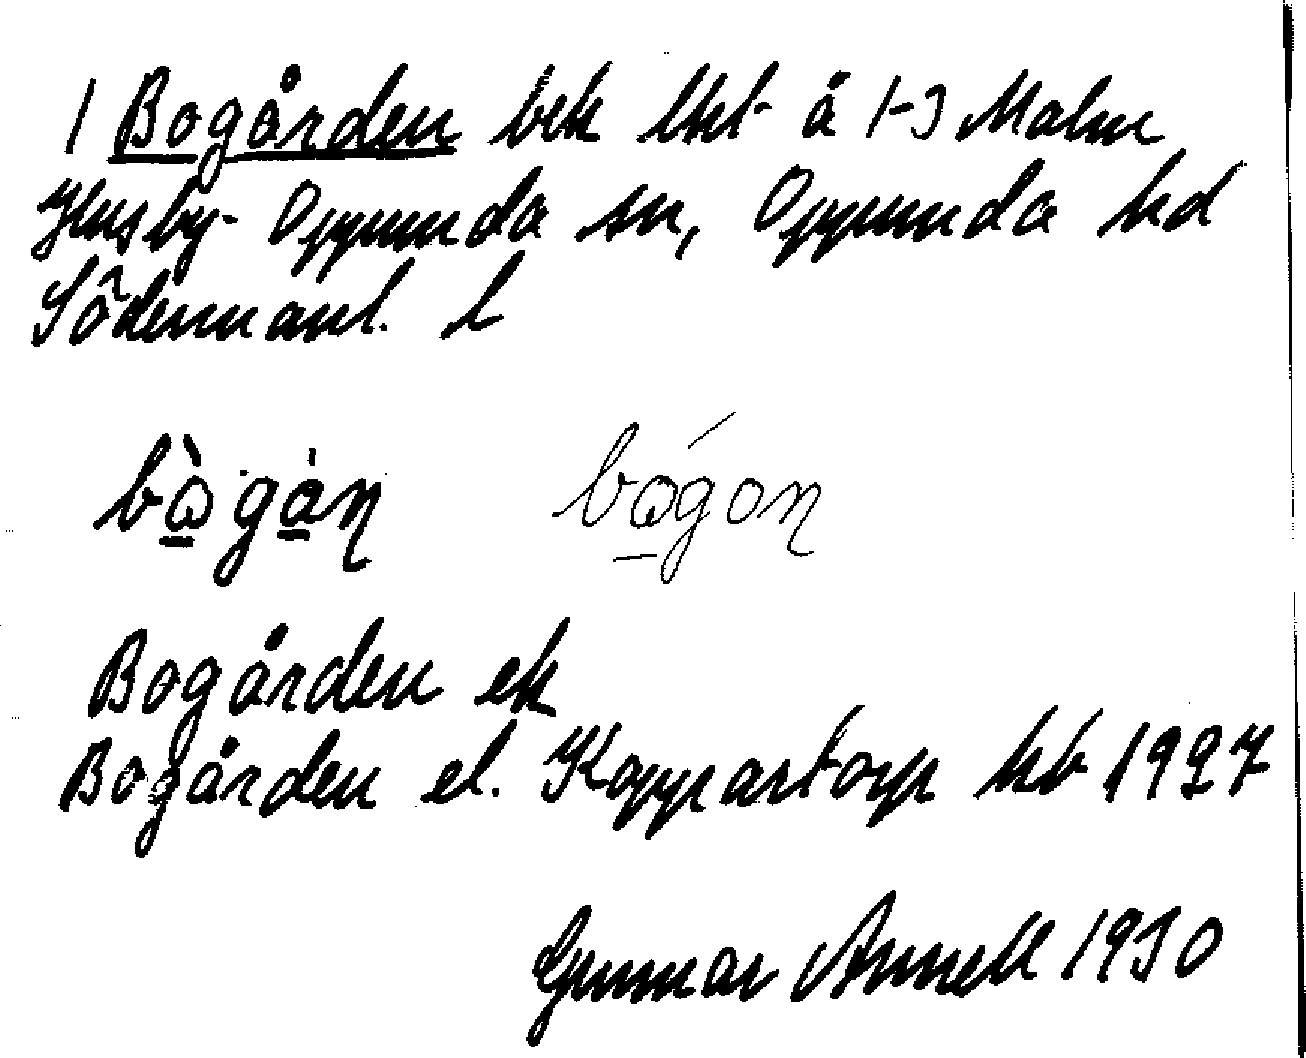 1 Bogården bek lht å 1-3 Malm
Husby-Oppunda sn, Oppunda hd
Södermanl. l
bὼgàn bǿgon
Bogården ek
Bogården el. Koppartorp hb 1927
Gunnar Annell 1930